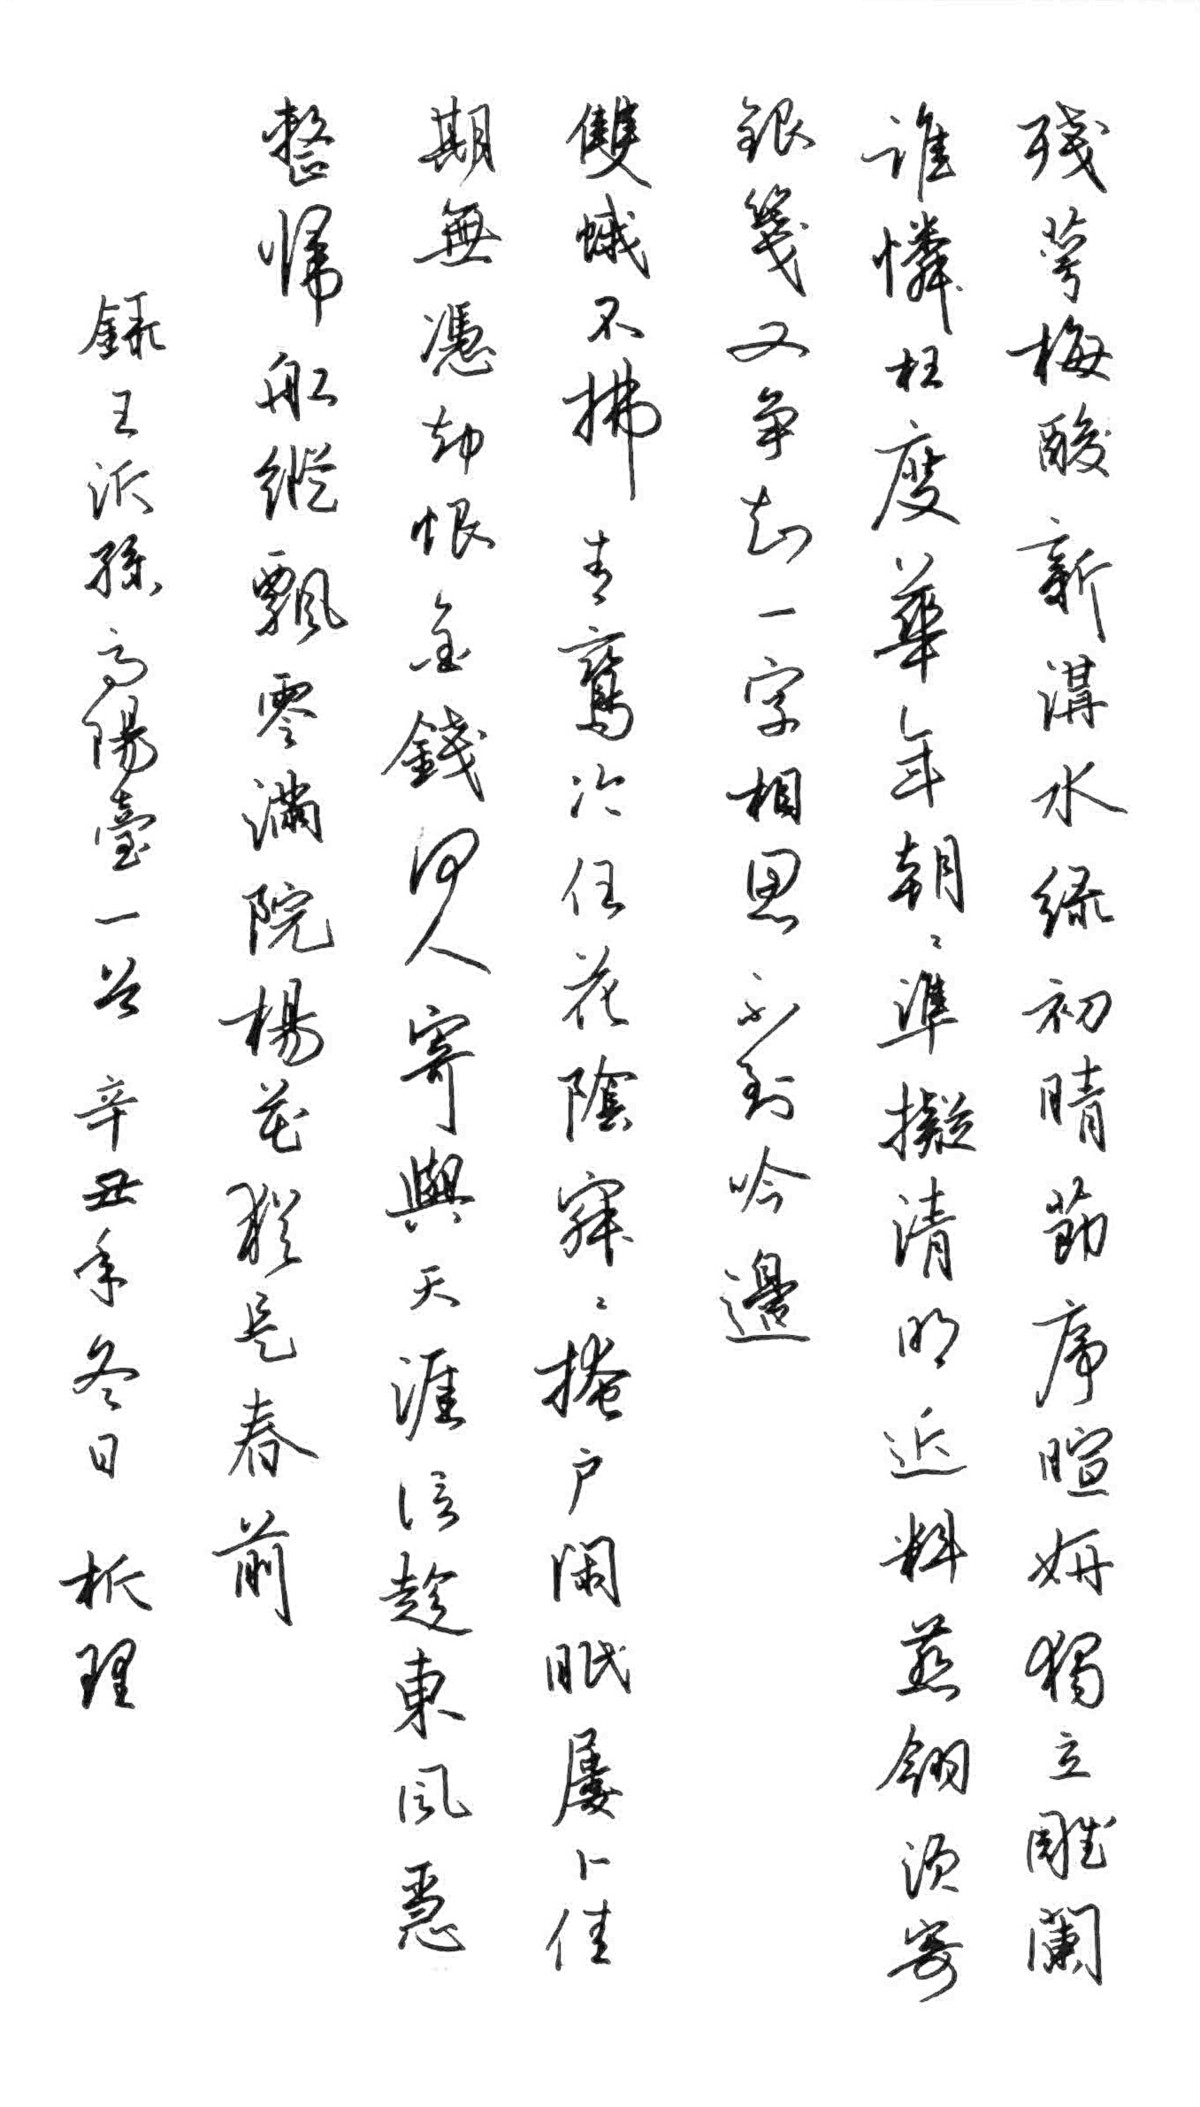 殘萼梅酸新溝水綠初晴節序暄妍獨立雕闌
誰憐枉度華年朝〻準擬清明近料燕翎須寄
銀箋又爭知一字相思不到吟邊
雙蛾不拂青鸞冷任花陰寂〻掩戶閑眠屢卜佳
期無憑卻恨金錢何人寄與天涯信趁東風急
整歸船縱飄零滿院楊花猶是春前
錄王沂孫高陽臺一首 辛丑年冬日 柢理